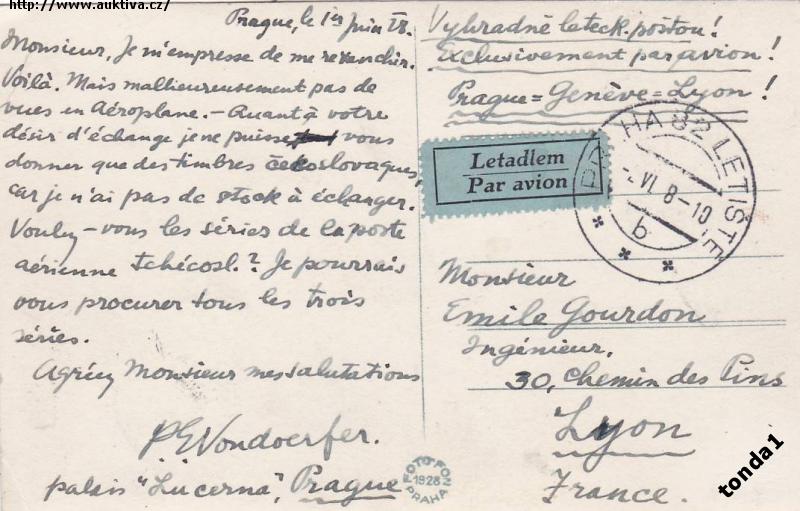 http://www.auktiva.cz/
Prague, le 1er Juin 28.
Monsieur, Je m'empresse de me revancher.
Voilà. Mais malheureusement pas de
vues en Aéroplane. — Quant à votre
désir d'échange je ne puisse vous
donner que des timbres čékoslovaques,
car je n'ai pas de stock à échanger.
Voulez-vous les séries de la poste
aérienne tchécosl.? Je pourrais
vous procurer tous les trois
séries.
Agréez Monsieur mes salutations
P.E. Vondoerfer.
palais "Lucerna", Prague
FOTO-FON
1928
PRAHA
Vyhradně leteck. poštou!
Exclusivement par avion!
Prague = Genève = Lyon!
Letadlem
Par avion
PRAHA 82 LETIŠTĚ
VI. 8-10
b
Monsieur
Emile Gourdon
Ingénieur,
30, Chemin des Pins
Lyon
France.
tonda1